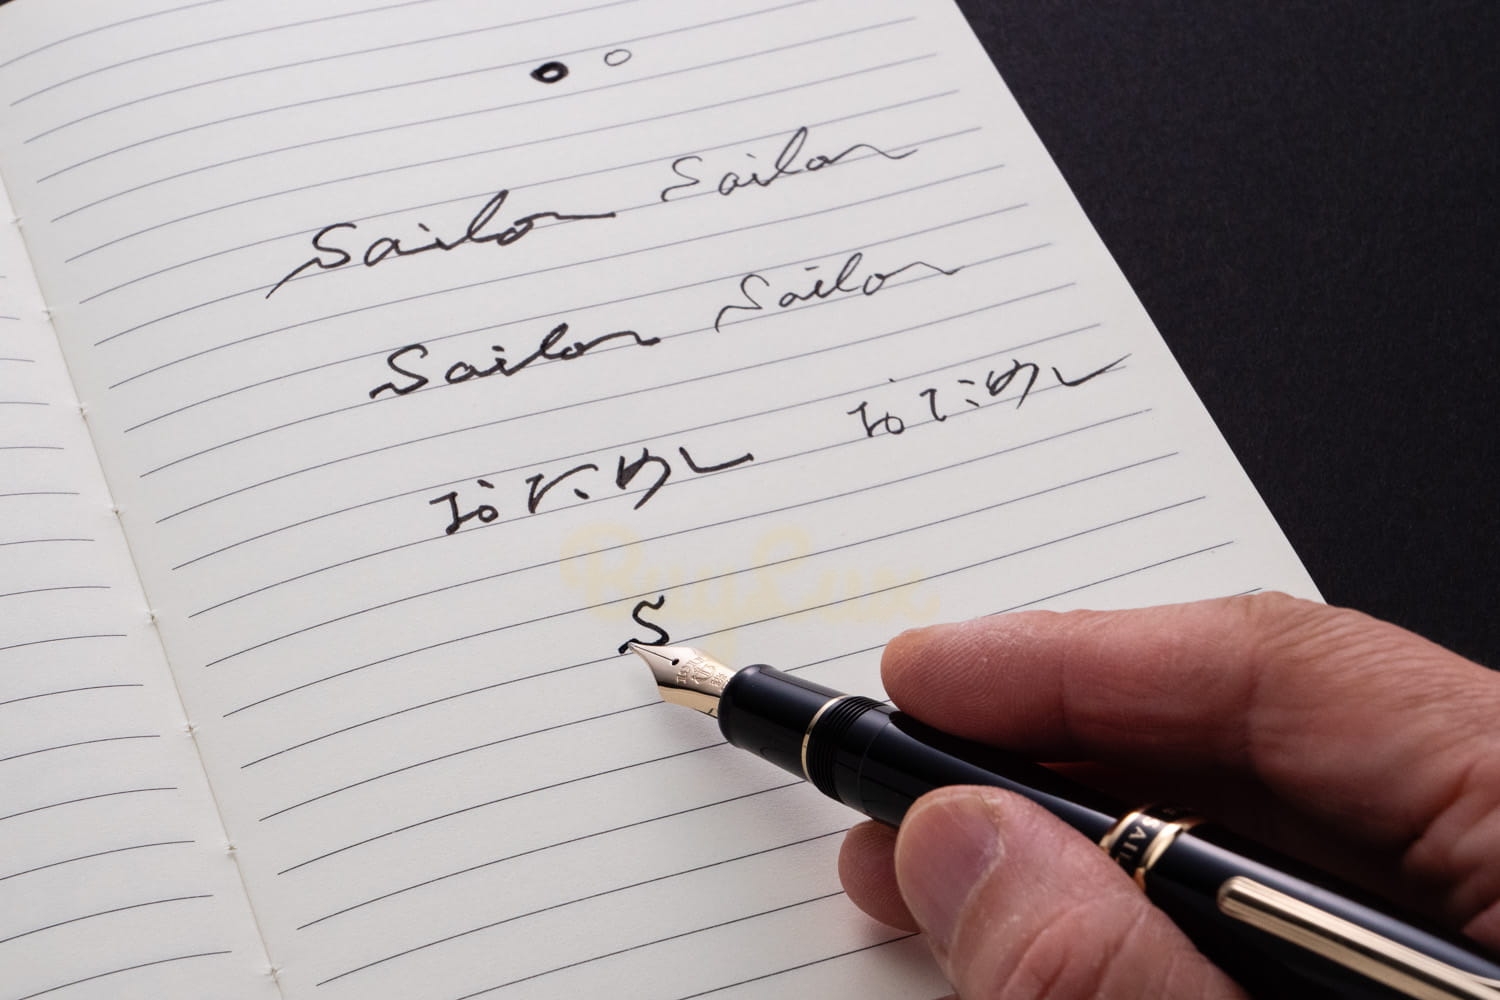 Sailor Sailor
Sailor Sailor
おためし おためし
S
BuyLux
SAIL